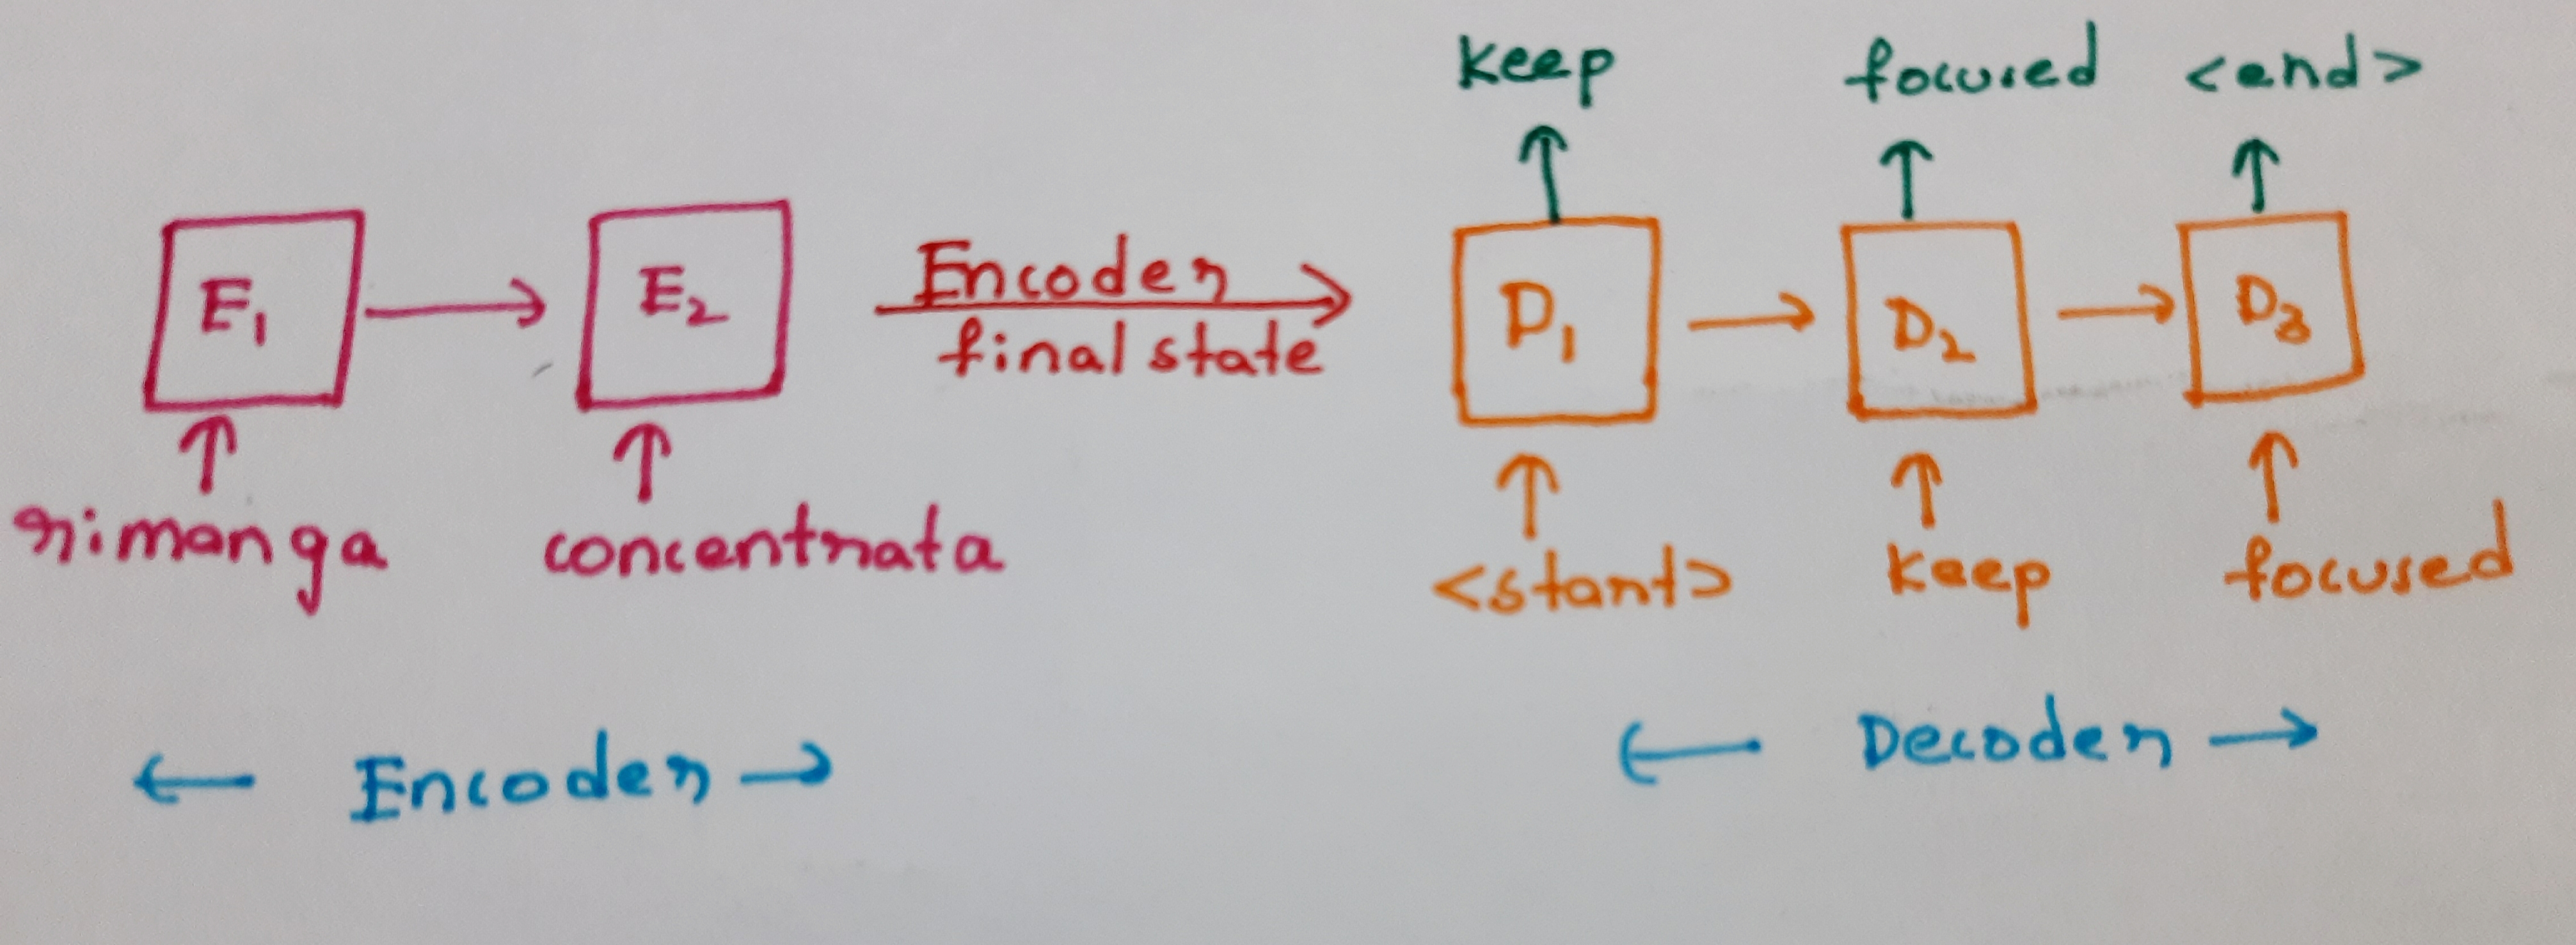 keep focused <end>
E1 E2 Encoder final state D1 D2 D3
rimanga concentrata <start> keep focused
Encoder Decoder